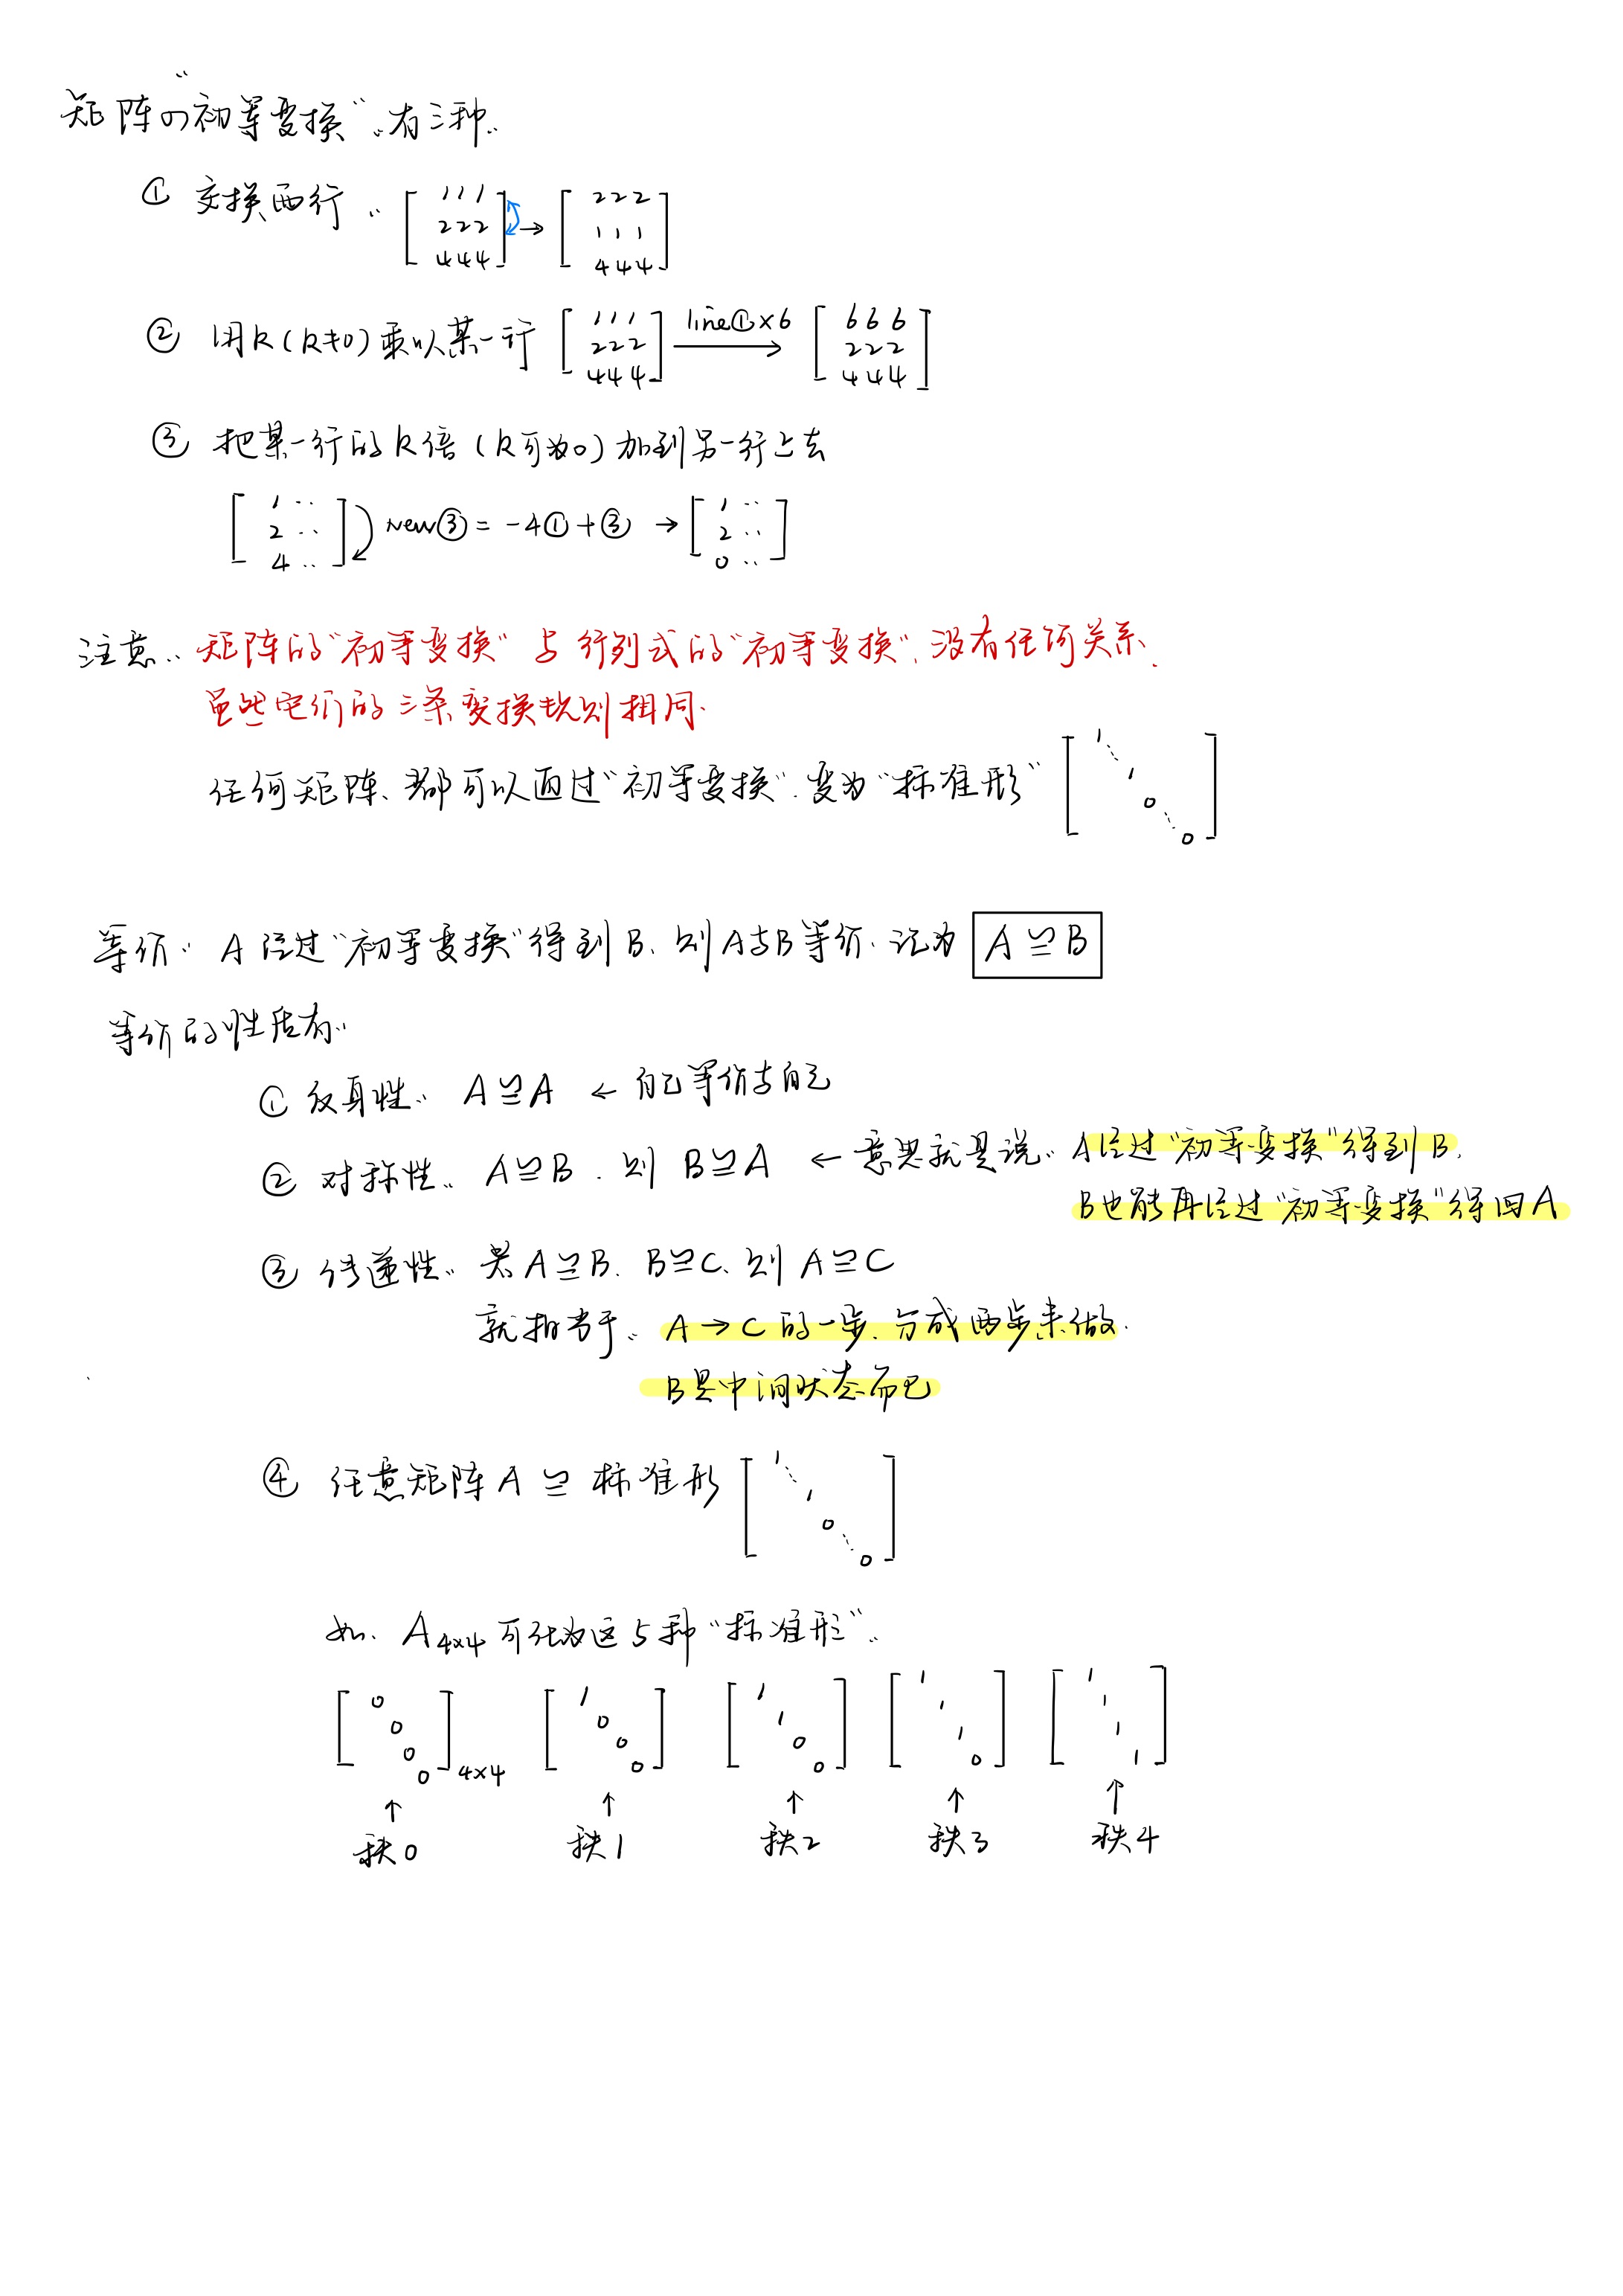 矩阵の"初等变换",有三种:
① 交换两行: [111 222 444] → [222 111 444]
② 用k(k≠0)乘以某一行 [111 222 444] line①×6 → [666 222 444]
③ 把某一行的k倍(k可为0)加到另一行上去
[1·· 2·· 4··] new③=-4①+③ → [1·· 2·· 0··]
注意: 矩阵的"初等变换"与行列式的"初等变换",没有任何关系,
虽然它们的三条变换规则相同.
任何矩阵、都可以通过"初等变换",变为"标准形" [1⋱1 0⋱0]
等价: A经过"初等变换"得到B, 则A与B等价, 记为 A≌B
等价的性质有:
① 反身性: A≌A ← 自己等价与自己
② 对称性: A≌B, 则 B≌A ← 意思就是说: A经过"初等变换"得到B,
B也能再经过"初等变换"得回A
③ 传递性: 若A≌B, B≌C, 则A≌C
就相当于: A→C的一步, 分成两步来做.
B是中间状态而已
④ 任意矩阵A ≌ 标准形 [1⋱1 0⋱0]
如, A4×4可化为这5种"标准形":
[0 0 0 0]4×4 [1 0 0 0] [1 1 0 0] [1 1 1 0] [1 1 1 1]
↑ ↑ ↑ ↑ ↑
秩0 秩1 秩2 秩3 秩4